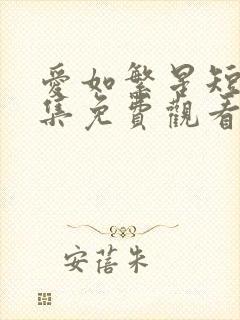 愛如繁星短
集免費觀看
安蓓朱